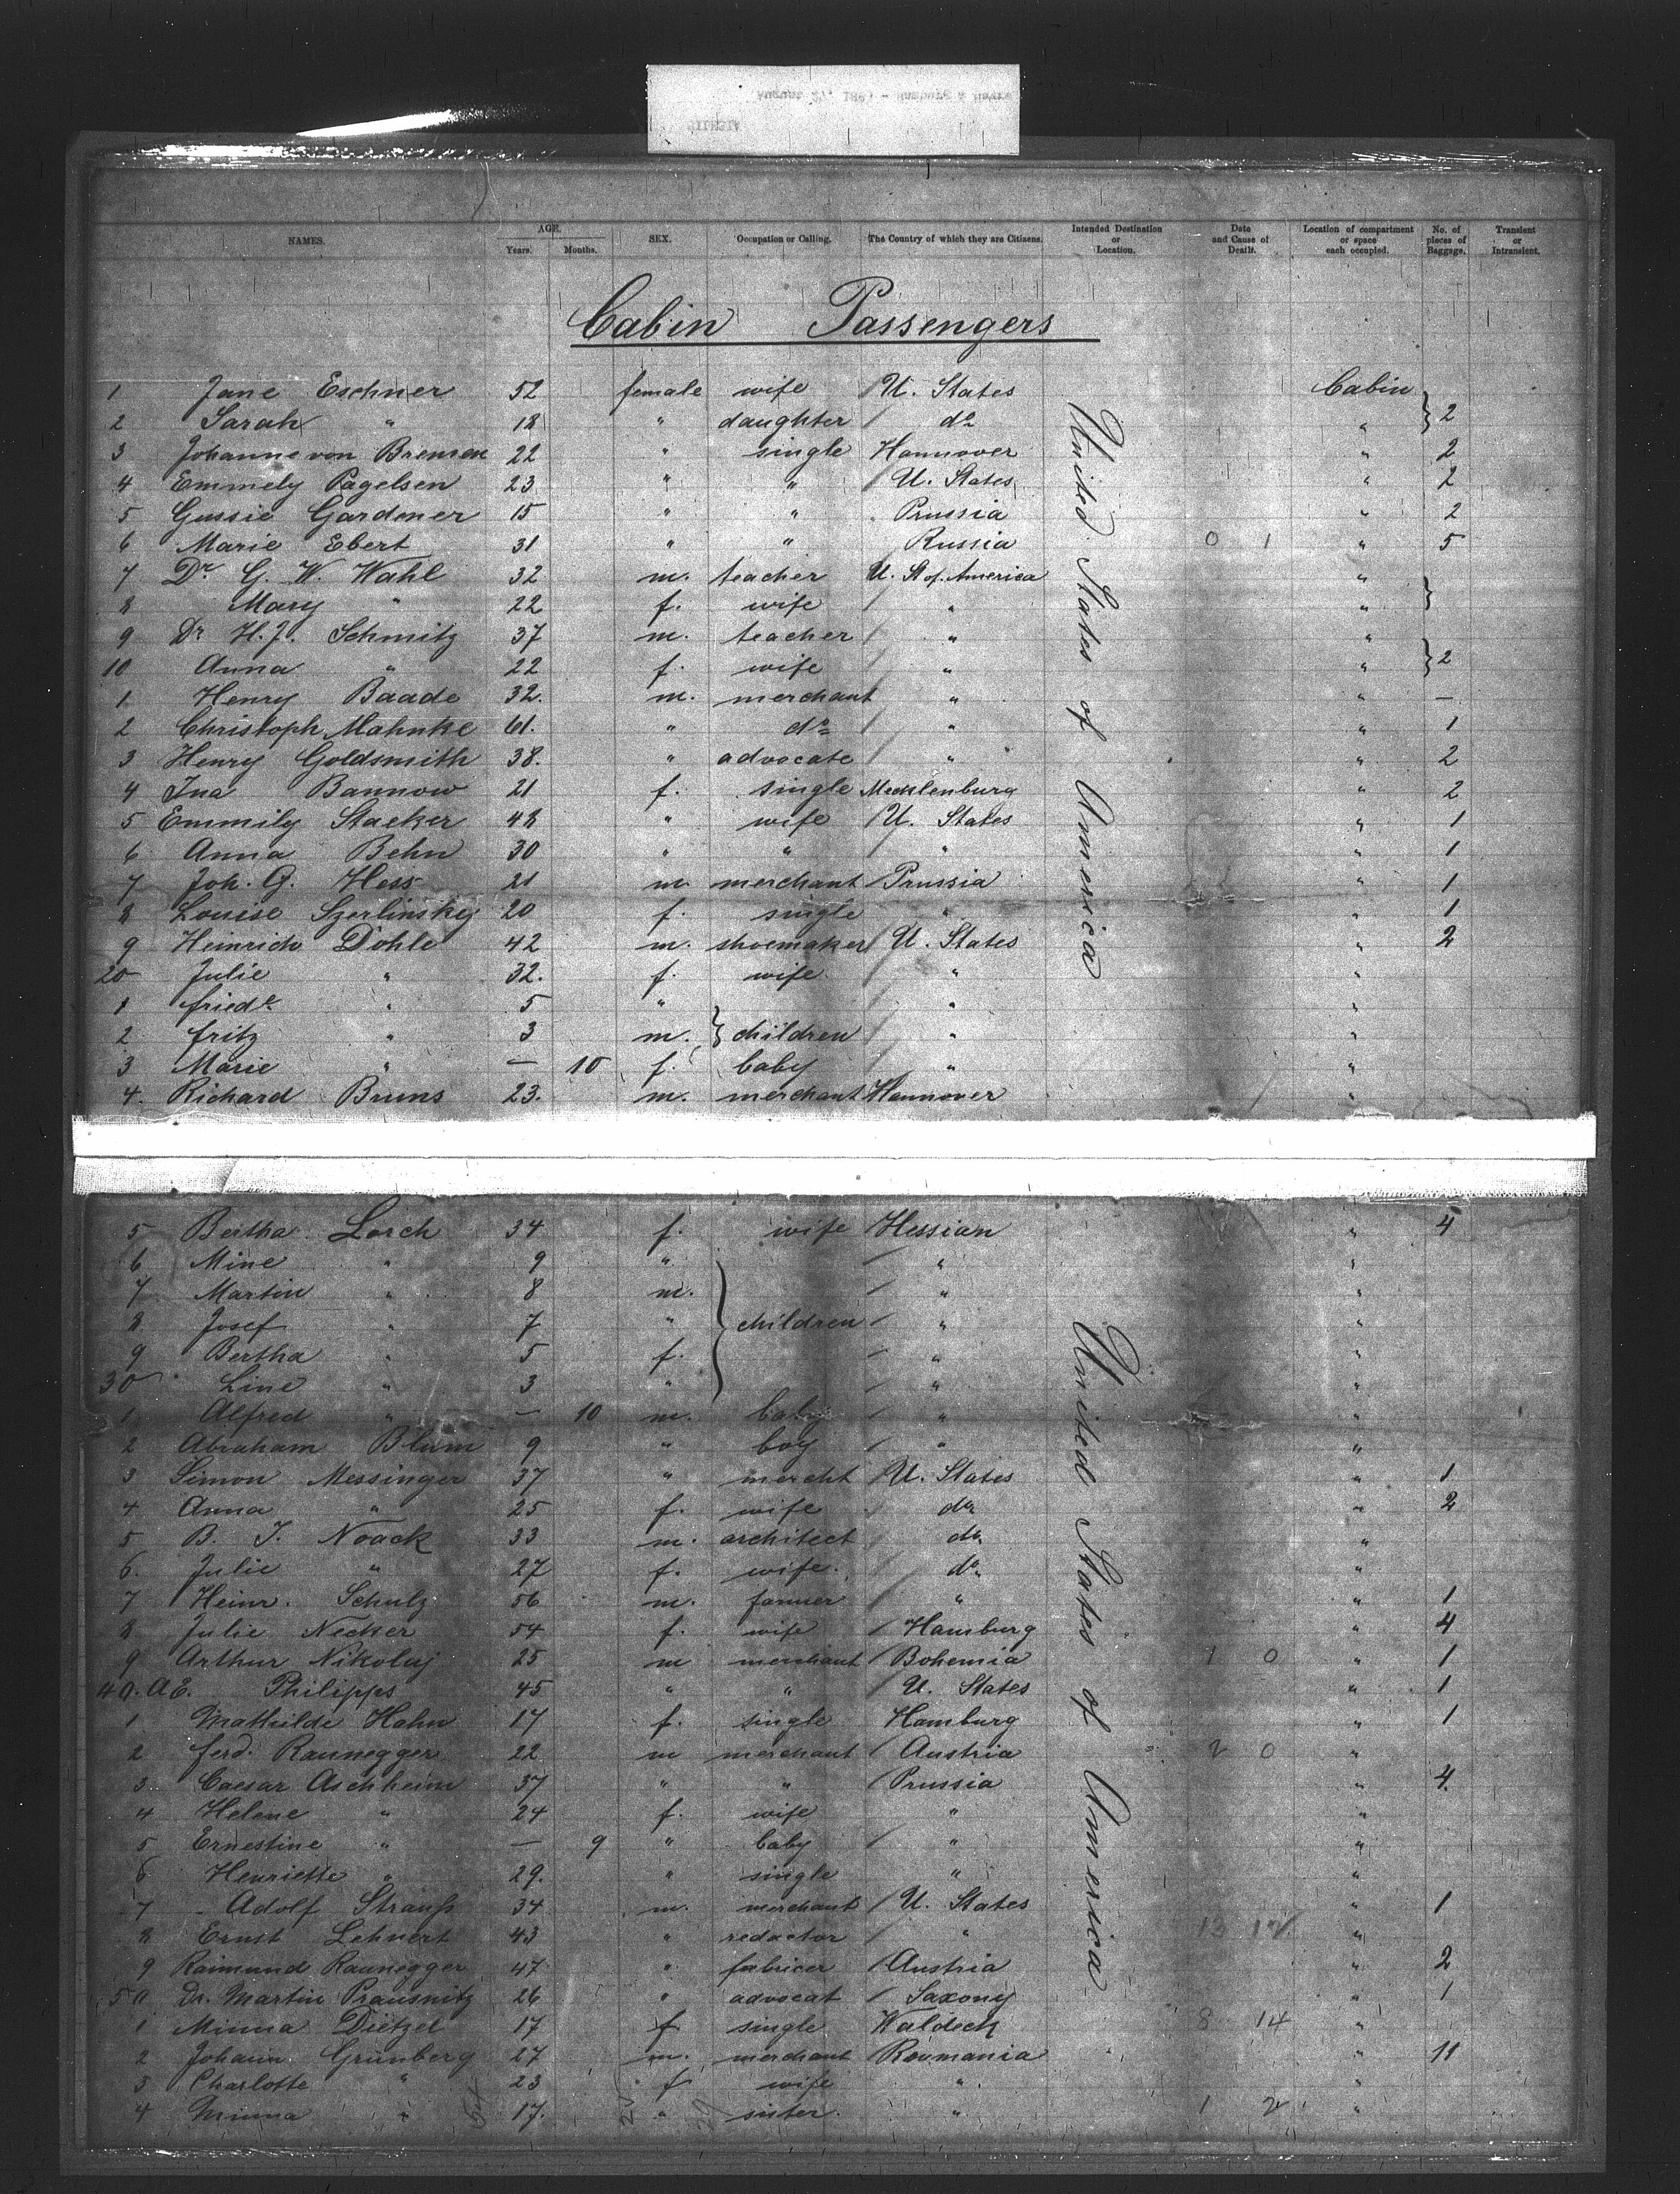 NAMES. AGE. Years. Months. SEX. Occupation or Calling. The Country of which they are Citizens. Intended Destination or Location. Date and Cause of Death. Location of compartment or space each occupied. No. of pieces of Baggage. Transient or Intransient.
Cabin Passengers
1 Jane Eschner 52 female wife U. States Cabin
2 Sarah " 18 " daughter do " } 2
3 Johanne von Bremen 22 " single Hannover " 2
4 Emmely Pagelsen 23 " " U. States " 2
5 Gussie Gardener 15 " " Prussia " 2
6 Marie Ebert 31 " " Russia 0 1 " 5
7 Dr. G. W. Wahl 32 m. teacher U. St of. America "
8 Mary " 22 f. wife " " }
9 Dr H. J. Schmitz 37 m. teacher " "
10 Anna " 22 f. wife " " } 2
1 Henry Baade 32. m. merchant " " —
2 Christoph Mahnke 61. " do " " 1
3 Henry Goldsmith 38. " advocate " " 2
4 Ina Bannow 21 f. single Mecklenburg " 2
5 Emmily Stacker 48 " wife U. States " 1
6 Anna Behn 30 " " " " 1
7 Joh. G. Hess 21 m merchant Prussia " 1
8 Louise Szerlinsky 20 f. single " " 1
9 Heinrich Dohle 42 m. shoemaker U. States " 2
20 Julie " 32. f. wife " "
1 friede " 5 " " "
2 fritz " 3 m. } children " "
3 Marie " — 10 f. baby " "
4. Richard Bruns 23. m. merchant Hannover "
United States of America
5 Bertha Lorch 34 f. wife Hessian " 4
6 Mine " 9 " " "
7 Martin " 8 m. " "
8 Josef " 7 " } children " "
9 Bertha " 5 f. " "
30 Line " 3 " " "
1 Alfred " — 10 m. baby " "
2 Abraham Blum 9 " boy " "
3 Simon Messinger 37 " mercht U. States " 1
4 Anna " 25 f. wife do " 2
5 B. J. Noack 33 m. architect do "
6. Julie " 27 f. wife. do "
7 Heinr. Schulz 56 m. farmer " " 1
8 Julie Necker 54 f. wife Hamburg " 4
9 Arthur Nikolaj 25 m merchant Bohemia 1 0 " 1
40. A E. Philipps 45 " " U. States " 1
1 Mathilde Hahn 17 f. single Hamburg " 1
2 ferd. Raunegger 22 m merchant Austria 2 0 "
3 Caesar Aschheim 37 " " Prussia " 4.
4 Helene " 24 f. wife " "
5 Ernestine " — 9 " baby " "
6 Henriette " 29. " single " "
7 Adolf Strauß 34 m. merchant U. States " 1
8 Ernst Lehnert 43 " redactor " 13 12 "
9 Raimund Raunegger 47 " fabricer Austria " 2
50 Dr. Martin Prausnitz 26 " advocat Saxony " 1
1 Minna Dietzel 17 f single Waldeck 8 14 "
2 Johann Grünberg 27 m. merchant Roumania " 11
3 Charlotte " 23 f wife " "
4 Minna " 17. " sister. " 1 2 "
United States of America